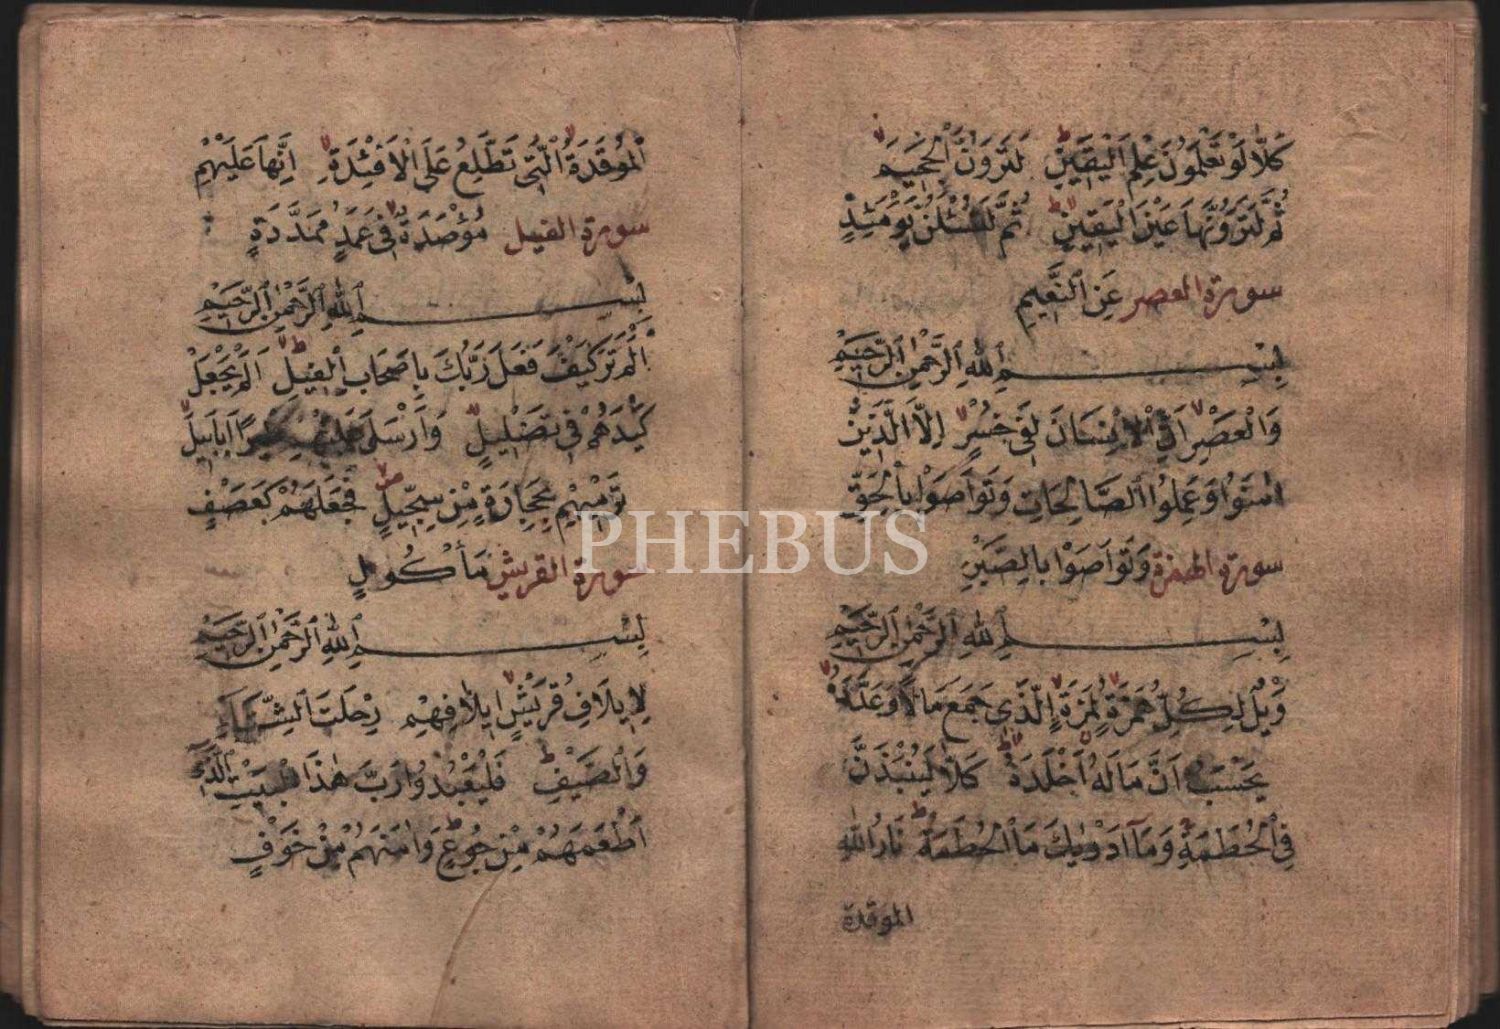 كَلَّا لَوْ تَعْلَمُونَ عِلْمَ الْيَقِينِ لَتَرَوُنَّ الْجَحِيمَ
ثُمَّ لَتَرَوُنَّهَا عَيْنَ الْيَقِينِ ثُمَّ لَتُسْئَلُنَّ يَوْمَئِذٍ
سورة العصر عَنِ النَّعِيمِ
بِسْمِ اللهِ الرَّحْمٰنِ الرَّحِيمِ
وَالْعَصْرِ اِنَّ الْاِنْسَانَ لَفِى خُسْرٍ اِلَّا الَّذِينَ
اٰمَنُوا وَعَمِلُوا الصَّالِحَاتِ وَتَوَاصَوْا بِالْحَقِّ
سورة الهمزة وَتَوَاصَوْا بِالصَّبْرِ
بِسْمِ اللهِ الرَّحْمٰنِ الرَّحِيمِ
وَيْلٌ لِكُلِّ هُمَزَةٍ لُمَزَةٍ اِلَّذِى جَمَعَ مَالًا وَعَدَّدَهُ
يَحْسَبُ اَنَّ مَالَهُ اَخْلَدَهُ كَلَّا لَيُنْبَذَنَّ
فِى الْحُطَمَةِ وَمَا اَدْرٰيكَ مَا الْحُطَمَةُ نَارُ اللهِ
الموقدة
الْمُوقَدَةُ الَّتِى تَطَّلِعُ عَلَى الْاَفْئِدَةِ اِنَّهَا عَلَيْهِمْ
سورة الفيل مُؤْصَدَةٌ فِى عَمَدٍ مُمَدَّدَةٍ
بِسْمِ اللهِ الرَّحْمٰنِ الرَّحِيمِ
اَلَمْ تَرَ كَيْفَ فَعَلَ رَبُّكَ بِاَصْحَابِ الْفِيلِ اَلَمْ يَجْعَلْ
كَيْدَهُمْ فِى تَضْلِيلٍ وَاَرْسَلَ عَلَيْهِمْ طَيْرًا اَبَابِيلَ
تَرْمِيهِمْ بِحِجَارَةٍ مِنْ سِجِّيلٍ فَجَعَلَهُمْ كَعَصْفٍ
سورة القريش مَأْكُولٍ
بِسْمِ اللهِ الرَّحْمٰنِ الرَّحِيمِ
لِاِيلَافِ قُرَيْشٍ اِيلَافِهِمْ رِحْلَتَ الشِّتَاءِ
وَالصَّيْفِ فَلْيَعْبُدُوا رَبَّ هٰذَا الْبَيْتِ الَّذِى
اَطْعَمَهُمْ مِنْ جُوعٍ وَاٰمَنَهُمْ مِنْ خَوْفٍ
PHEBUS